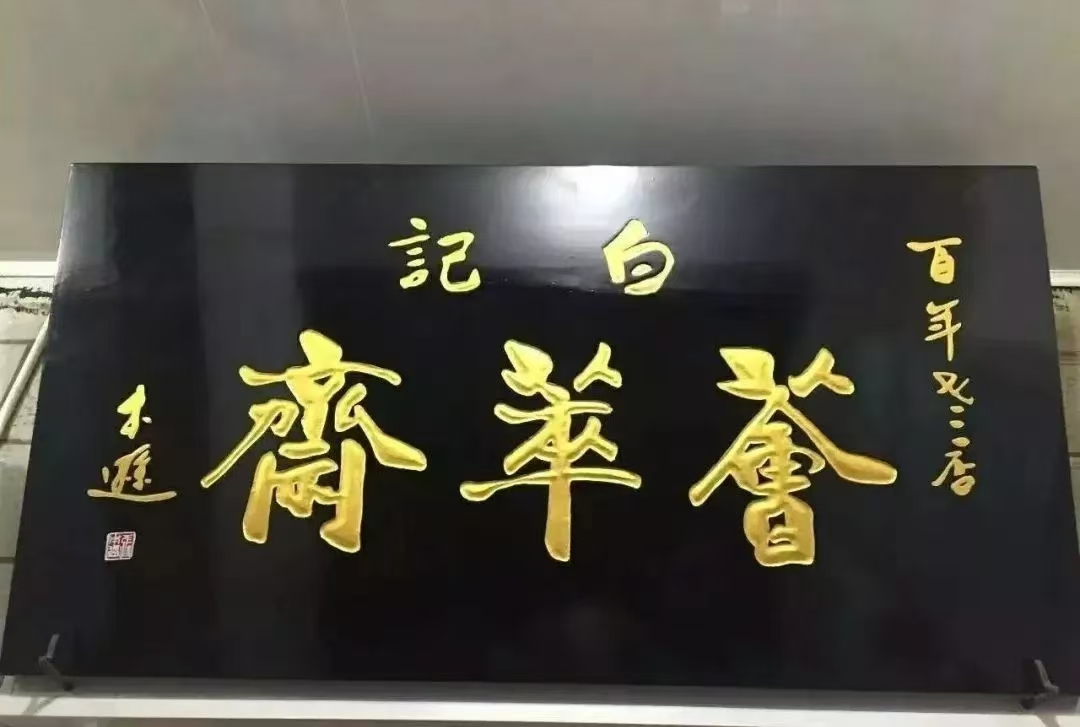 百年老二店
白記
薈萃齋
木遜